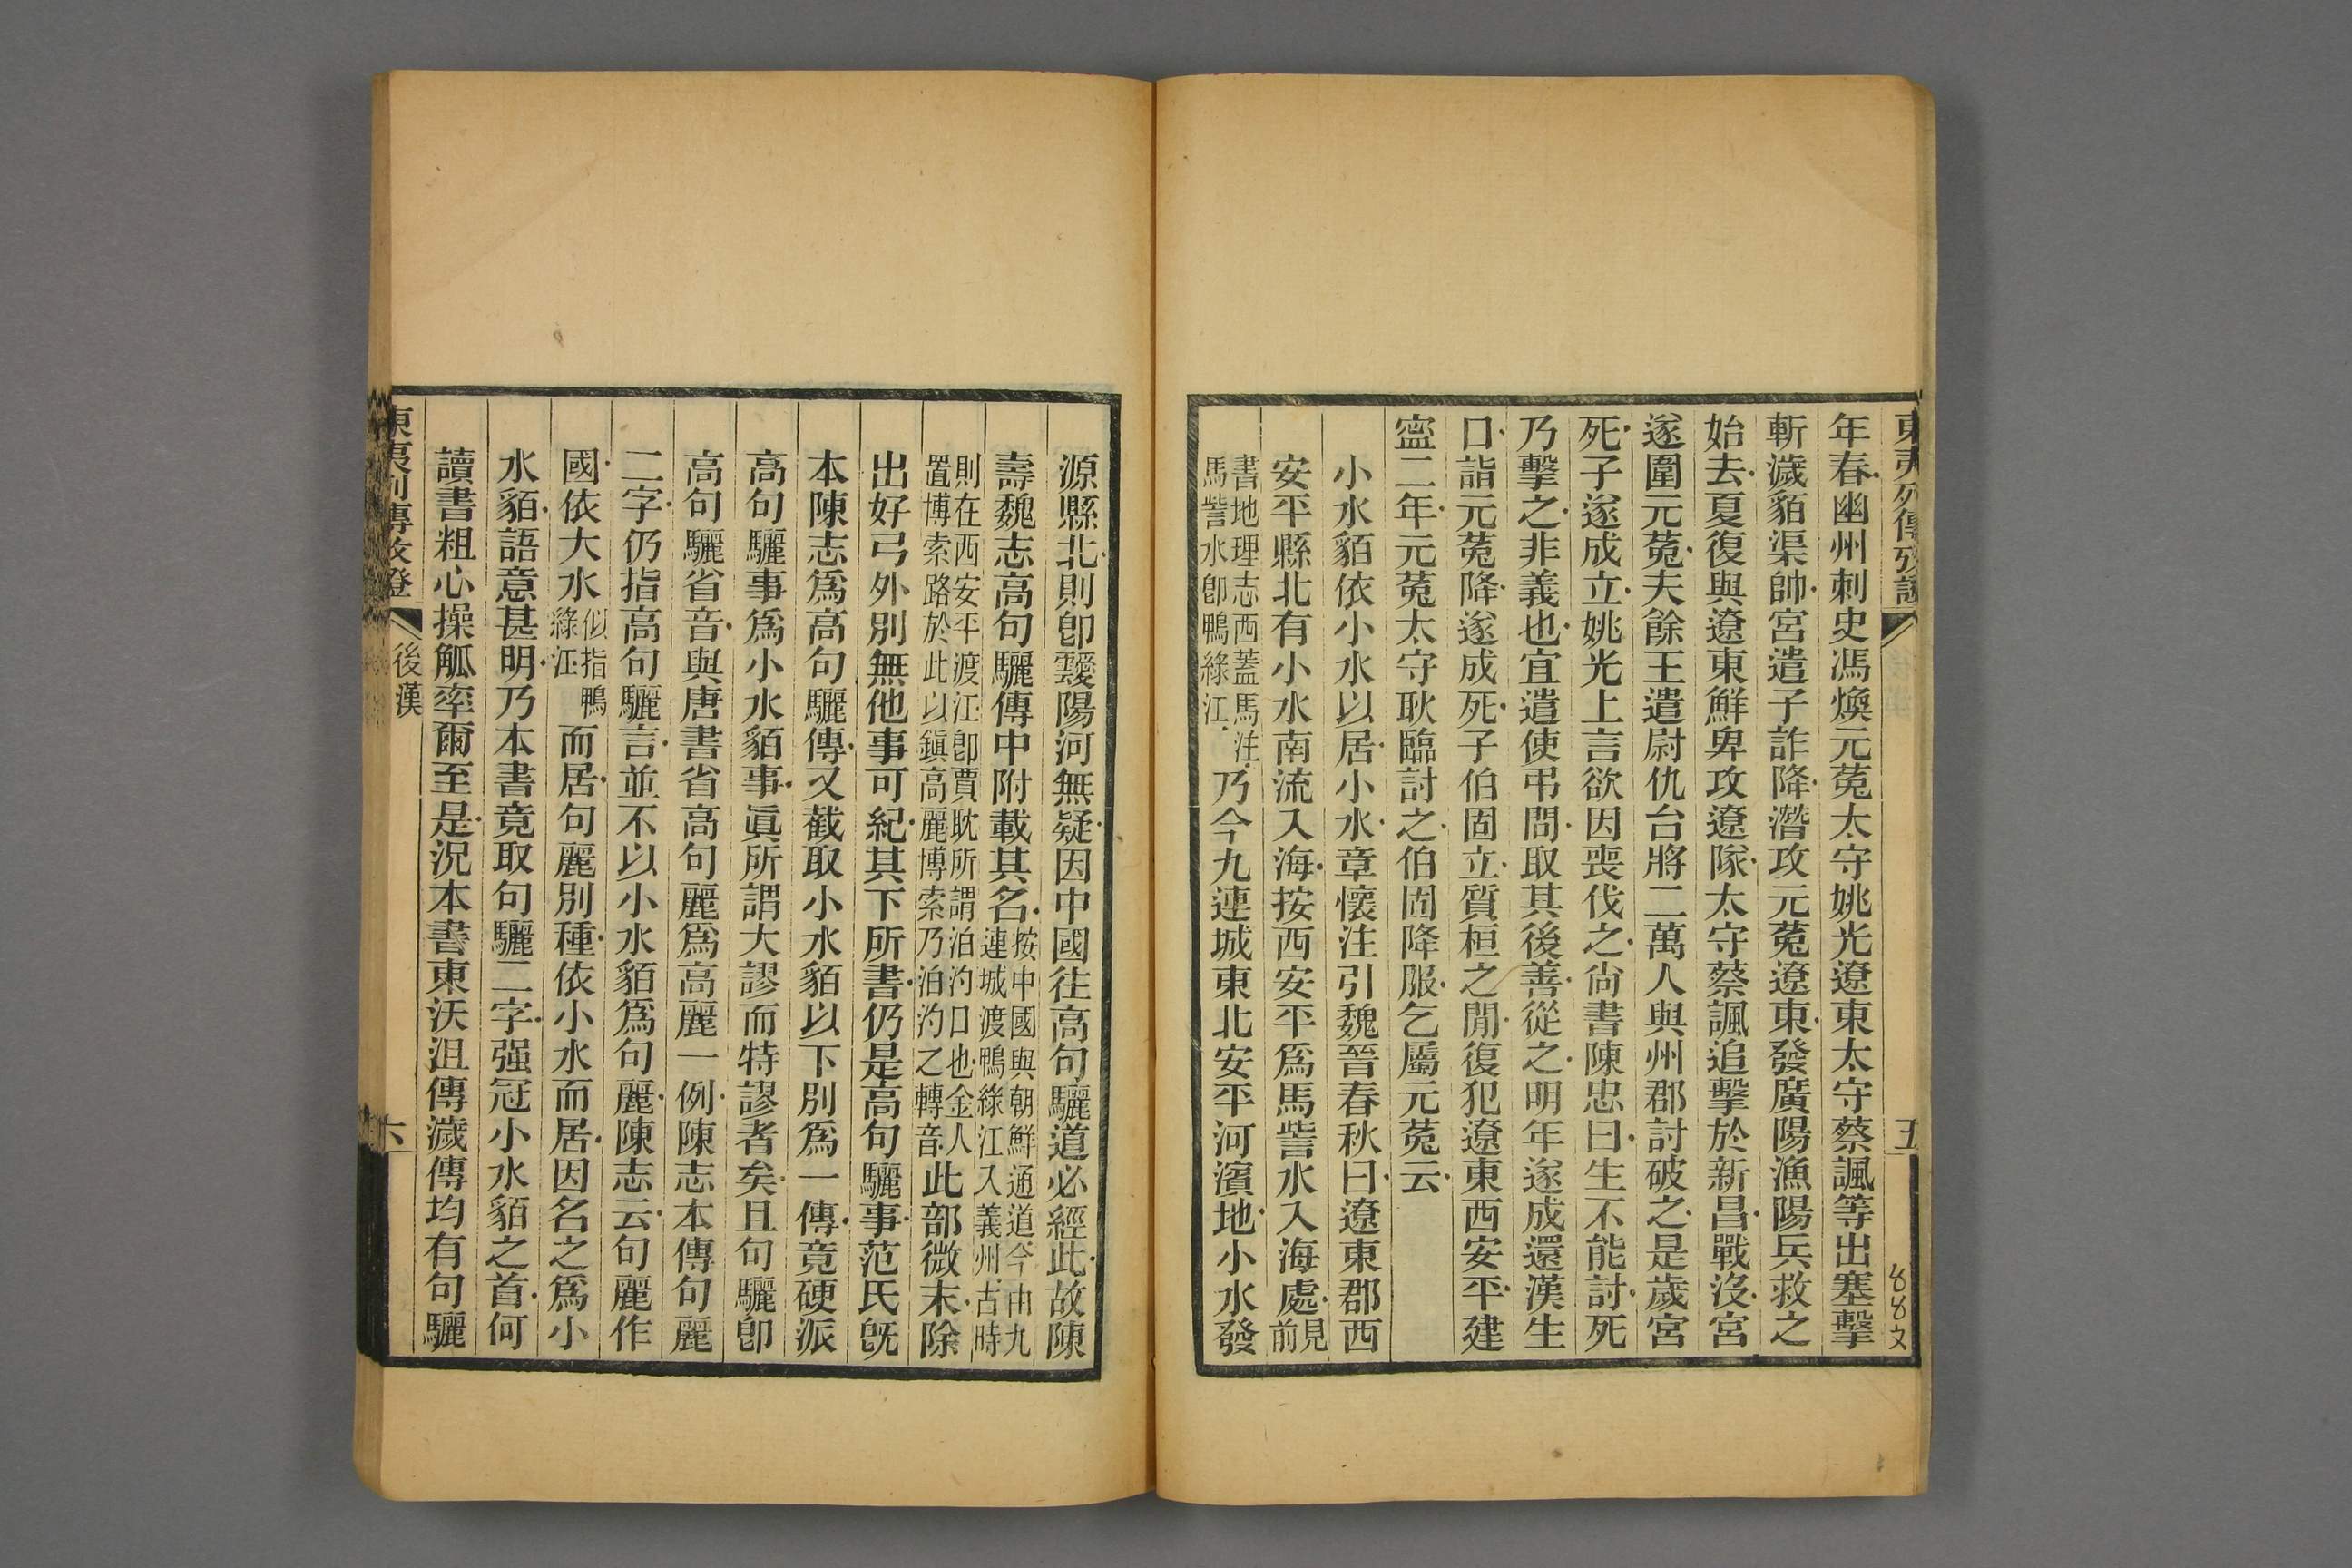 東夷列傳攷證
五
年春幽州刺史馮煥元菟太守姚光遼東太守蔡諷等出塞擊
斬濊貊渠帥宮遣子詐降潛攻元菟遼東發廣陽漁陽兵救之
始去夏復與遼東鮮卑攻遼隊太守蔡諷追擊於新昌戰沒宮
遂圍元菟夫餘王遣尉仇台將二萬人與州郡討破之是歲宮
死子遂成立姚光上言欲因喪伐之尙書陳忠曰生不能討死
乃擊之非義也宜遣使弔問取其後善從之明年遂成還漢生
口詣元菟降遂成死子伯固立質桓之閒復犯遼東西安平建
寍二年元菟太守耿臨討之伯固降服乞屬元菟云
小水貊依小水以居小水章懷注引魏晉春秋曰遼東郡西
安平縣北有小水南流入海按西安平爲馬訾水入海處見前
書地理志西蓋馬注馬訾水卽鴨綠江乃今九連城東北安平河濱地小水發
源縣北則卽靉陽河無疑因中國往高句驪道必經此故陳
壽魏志高句驪傳中附載其名按中國與朝鮮通道今由九連城渡鴨綠江入義州古時
則在西安平渡江卽賈耽所謂泊汋口也金人置博索路於此以鎮高麗博索乃泊汋之轉音此部微末除
出好弓外別無他事可紀其下所書仍是高句驪事范氏旣
本陳志爲高句驪傳又截取小水貊以下別爲一傳竟硬派
高句驪事爲小水貊事眞所謂大謬而特謬者矣且句驪卽
高句驪省音與唐書省高句麗爲高麗一例陳志本傳句麗
二字仍指高句驪言並不以小水貊爲句麗陳志云句麗作
國依大水似指鴨綠江而居句麗別種依小水而居因名之爲小
水貊語意甚明乃本書竟取句驪二字强冠小水貊之首何
讀書粗心操觚率爾至是況本書東沃沮傳濊傳均有句驪
東夷列傳攷證
後漢
六